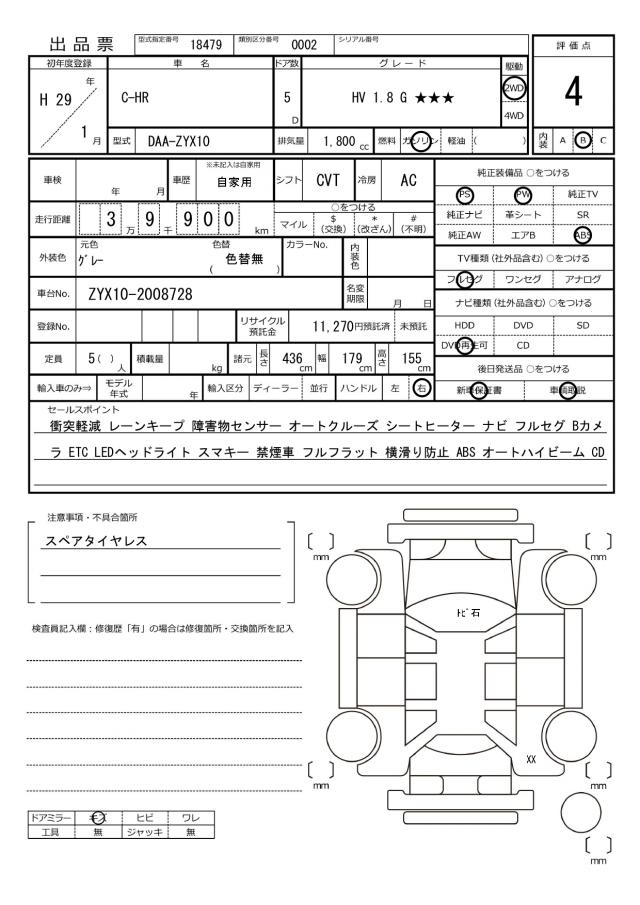 出品票 型式指定番号 18479 類別区分番号 0002 シリアル番号
評価点
4
初年度登録 車名 ドア数 グレード 駆動
H 29 年 1 月 C-HR 5 D HV 1.8 G ★★★ 2WD 4WD
型式 DAA-ZYX10 排気量 1,800 cc 燃料 ガソリン 軽油 ( ) 内装 A B C
車検 年 月 車歴 ※未記入は自家用 自家用 シフト CVT 冷房 AC
純正装備品 ○をつける
PS PW 純正TV
純正ナビ 革シート SR
純正AW エアB ABS
走行距離 3 万 9 千 9 0 0 km ○をつける
マイル $ (交換) * (改ざん) # (不明)
外装色 元色 グレー 色替 ( 色替無 ) カラーNo. 内装色
TV種類 (社外品含む) ○をつける
フルセグ ワンセグ アナログ
車台No. ZYX10-2008728 名変期限 月 日
ナビ種類 (社外品含む) ○をつける
登録No. リサイクル預託金 11,270円預託済 未預託
HDD DVD SD
DVD再生可 CD
定員 5 ( ) 人 積載量 kg 諸元 長さ 436 cm 幅 179 cm 高さ 155 cm
後日発送品 ○をつける
輸入車のみ⇒ モデル年式 年 輸入区分 ディーラー 並行 ハンドル 左 右
新車保証書 車輌取説
セールスポイント
衝突軽減 レーンキープ 障害物センサー オートクルーズ シートヒーター ナビ フルセグ Bカメ
ラ ETC LEDヘッドライト スマキー 禁煙車 フルフラット 横滑り防止 ABS オートハイビーム CD
注意事項・不具合箇所
スペアタイヤレス
mm mm
ﾄﾋﾞ石
検査員記入欄：修復歴「有」の場合は修復箇所・交換箇所を記入
XX
mm mm
ドアミラー キズ ヒビ ワレ
工具 無 ジャッキ 無
mm